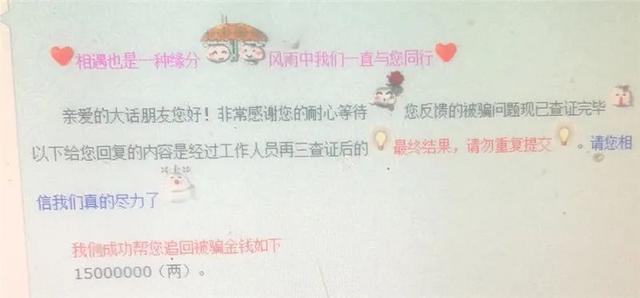 相遇也是一种缘分 风雨中我们一直与您同行
亲爱的大话朋友您好！非常感谢您的耐心等待 您反馈的被骗问题现已查证完毕
以下给您回复的内容是经过工作人员再三查证后的 最终结果，请勿重复提交 。请您相
信我们真的尽力了
我们成功帮您追回被骗金钱如下
15000000（两）。